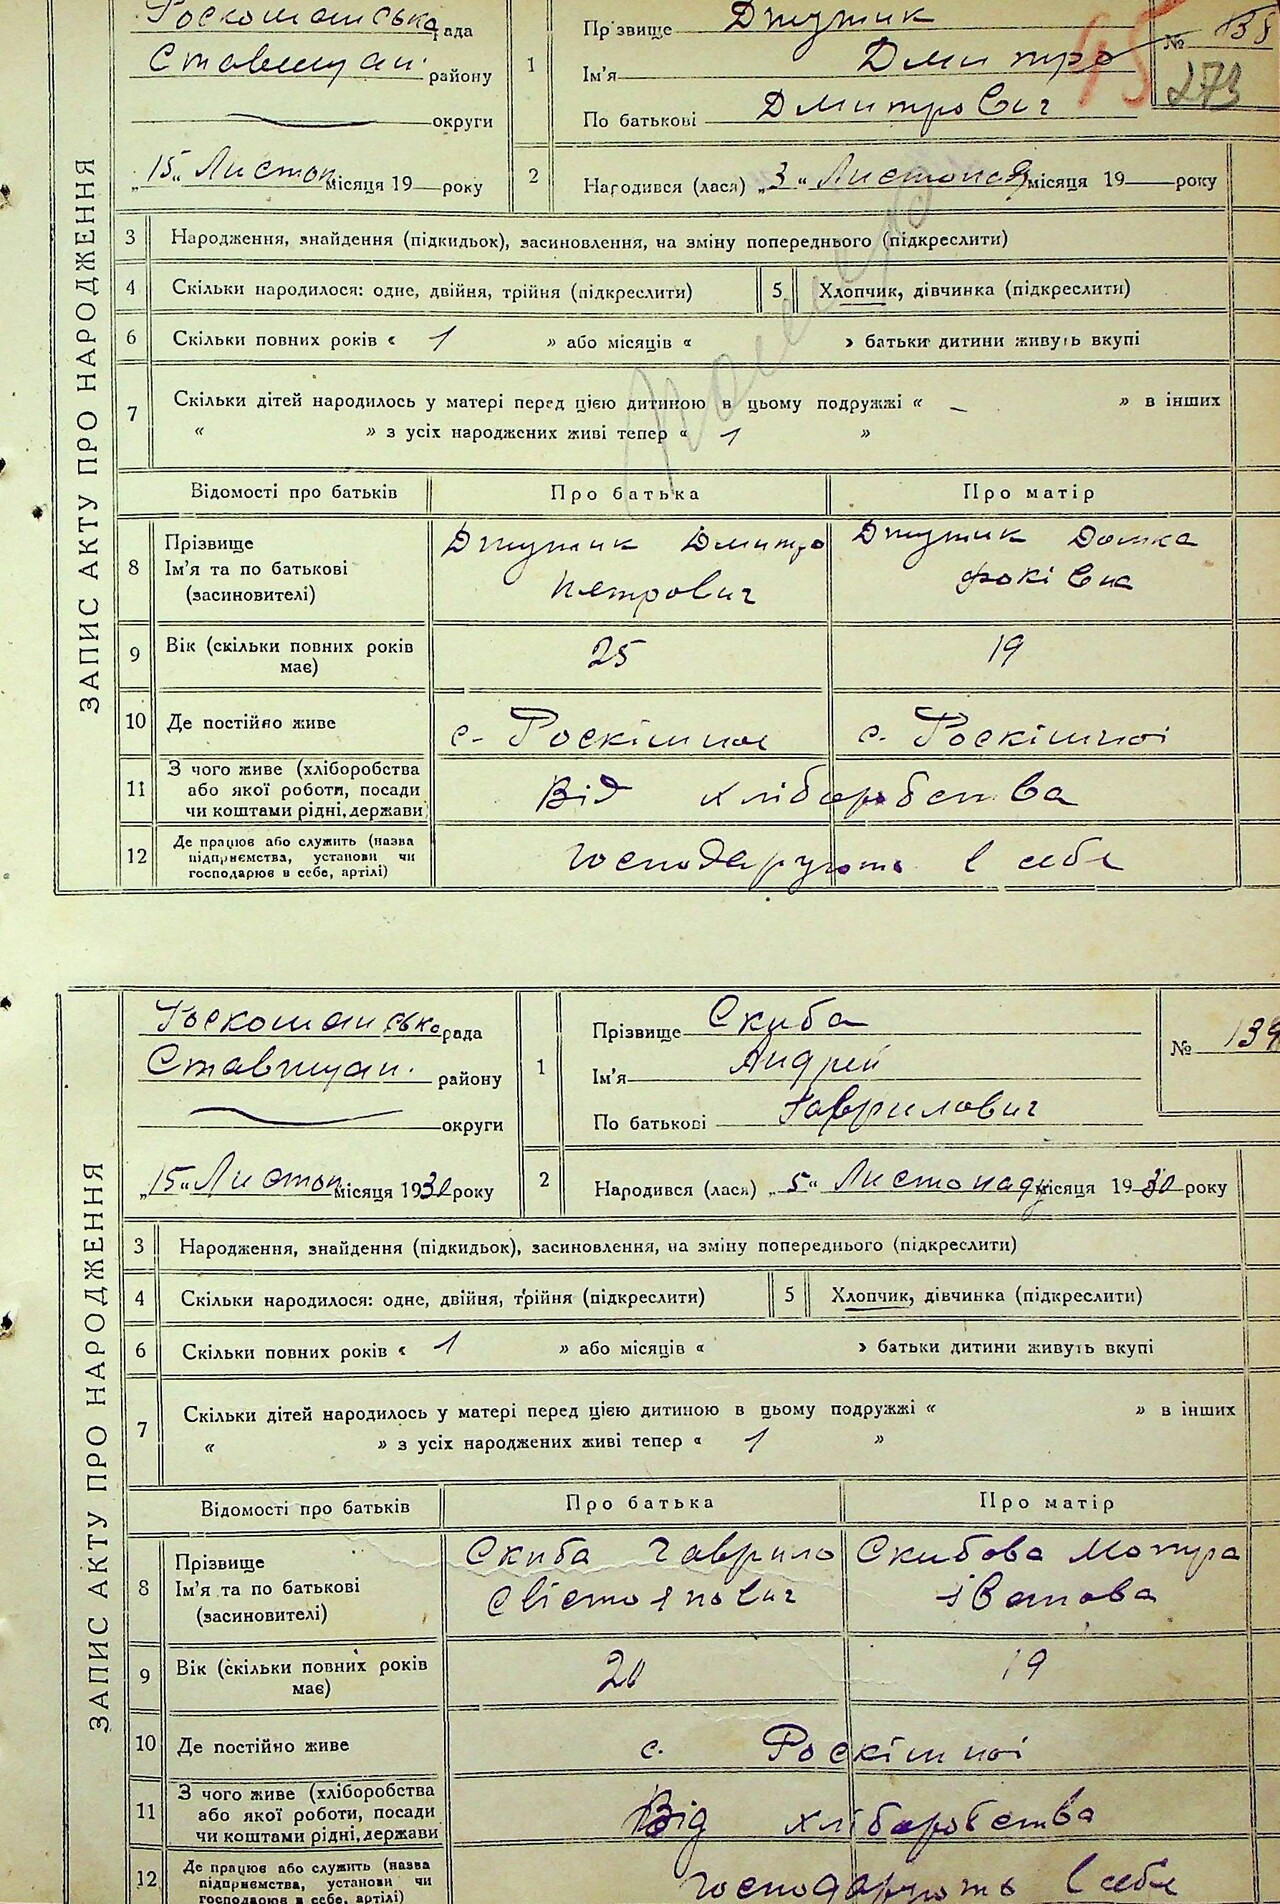 ЗАПИС АКТУ ПРО НАРОДЖЕННЯ
Роскошанська рада
Ставищан. району
округи
„15“ Листоп місяця 19 року
1
Прізвище Джужик
Ім'я Дмитро
По батькові Дмитрович
№ 138
45
273
2
Народився (лася) „3“ Листопад місяця 19 року
3 Народження, знайдення (підкидьок), засиновлення, на зміну попереднього (підкреслити)
4 Скільки народилося: одне, двійня, трійня (підкреслити) 5 Хлопчик, дівчинка (підкреслити)
6 Скільки повних років « 1 » або місяців « » батьки дитини живуть вкупі
7 Скільки дітей народилось у матері перед цією дитиною в цьому подружжі « – » в інших
« » з усіх народжених живі тепер « 1 »
Відомості про батьків Про батька Про матір
8 Прізвище
Ім'я та по батькові
(засиновителі)
Джужик Дмитро
Петрович
Джужик Домка
Фоківна
9 Вік (скільки повних років має) 25 19
10 Де постійно живе с. Роскішної с. Роскішної
11 З чого живе (хліборобства
або якої роботи, посади
чи коштами рідні, держави
Від хліборобства
12 Де працює або служить (назва
підприємства, установи чи
господарює в себе, артілі)
господарують в себе
ЗАПИС АКТУ ПРО НАРОДЖЕННЯ
Роскошанська рада
Ставищан. району
округи
„15“ Листоп місяця 1930 року
1
Прізвище Скиба
Ім'я Андрей
По батькові Гаврилович
№ 139
2
Народився (лася) „5“ Листопаду місяця 1930 року
3 Народження, знайдення (підкидьок), засиновлення, на зміну попереднього (підкреслити)
4 Скільки народилося: одне, двійня, трійня (підкреслити) 5 Хлопчик, дівчинка (підкреслити)
6 Скільки повних років « 1 » або місяців « » батьки дитини живуть вкупі
7 Скільки дітей народилось у матері перед цією дитиною в цьому подружжі « » в інших
« » з усіх народжених живі тепер « 1 »
Відомості про батьків Про батька Про матір
8 Прізвище
Ім'я та по батькові
(засиновителі)
Скиба Гаврило
Скибова Мотра
Іванова
9 Вік (скільки повних років має) 20 19
10 Де постійно живе с. Роскішної
11 З чого живе (хліборобства
або якої роботи, посади
чи коштами рідні, держави
Від хліборобства
12 Де працює або служить (назва
підприємства, установи чи
господарює в себе, артілі)
господарують в себе